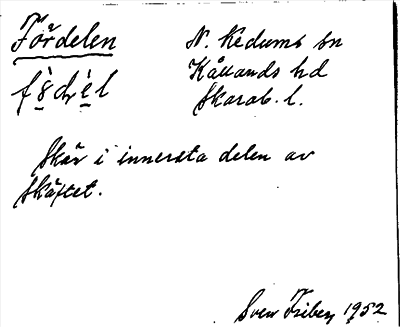 Fördelen
N. Kedums sn
Kållands hd
Skarab. l.
Skär i innersta delen av
Skäftet.
Sven Friberg 1952